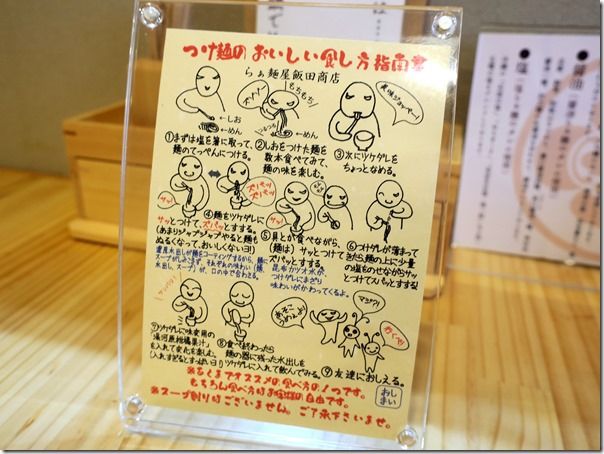 つけ麺のおいしい食し方指南書
らぁ麺屋飯田商店
←しお
←めん
もちもち!
←めん
美味ジョベー!
①まずは塩を箸に取って、
麺のてっぺんにつける。
②しおをつけた麺を
数本食べてみて、
麺の味を楽しむ。
③次にツケダレを
ちょっとなめる。
サッ!
ズバッ
サッ!
④麺をツケダレに
サッとつけて、ズバッとすする。
(あまりジャブジャブやると麺も
ぬるくなって、おいしくないヨ!)
⑤具とか食べながら、
麺は)サッとつけて
ズバッとする。
昆布カツオ水が、
つけダレにまざり
味わいがかわってくるよ。
⑥つけダレが薄まって
きたら麺の上に少量
の塩をのせながらサッ
とつけてズバッとすする!
⑦ツケダレに味変用の
「湯河原柑橘果汁」
を入れて変化を楽しむ。
(入れすぎるとすっぱいヨ!)
⑧食べ終わったら
麺の器に残った水出しを
ツケダレに入れて飲んでみる。
⑨友達におしえる。
おしまい
※あくまでオススメの食べ方の1つです。
もちろん食べ方はお客様の自由です。
※スープ割りはございません。ご了承下さいませ。